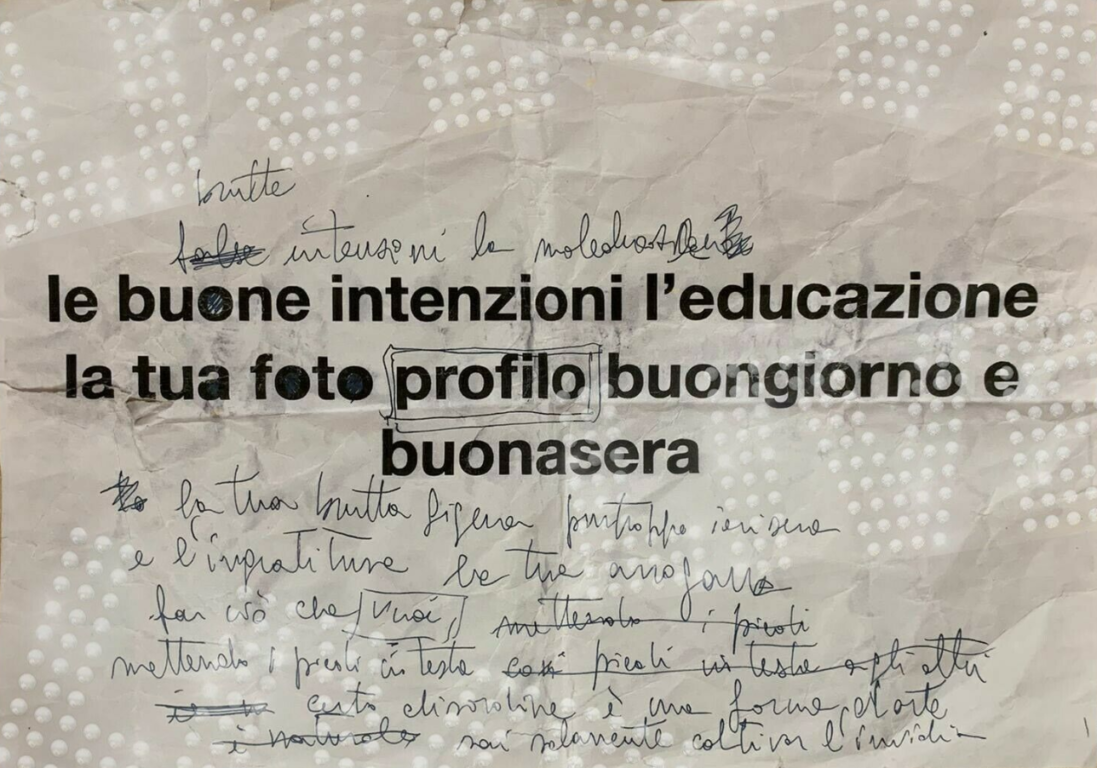 brutte
false intensioni la maleducazion
le buone intenzioni l'educazione
la tua foto profilo buongiorno e
buonasera
la tua brutta figura purtroppo ieri sera
e l'ingratitudine la tua arroganza
fai ciò che vuoi, mettendo i piedi
mettendo i piedi in testa così piedi in testa agli altri
certo disordine è una forma d'arte
è naturale sai solamente coltivar l'invidia